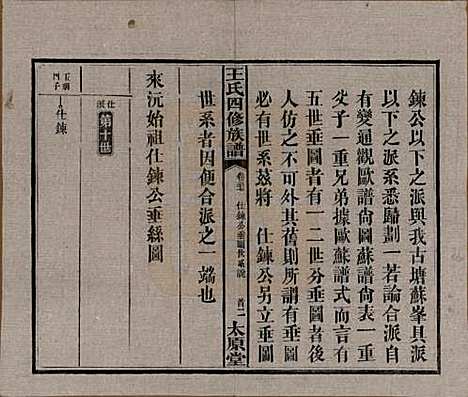 鍊公以下之派與我古塘蘇峯具派
以下之派系悉歸劃一若論合派自
有變通觀歐譜尙圖蘇譜尙表一重
父子一重兄弟據歐蘇譜式而言有
五世垂圖者有一二世分垂圖者後
人仿之不可外其舊則所謂有垂圖
必有世系茲將 仕鍊公另立垂圖
王氏四修族譜
仕鍊公垂圖世系說
首二
太原堂
世系者因便合派之一端也
來沅始祖仕鍊公垂絲圖
仕派
第十世
四子
仕鍊